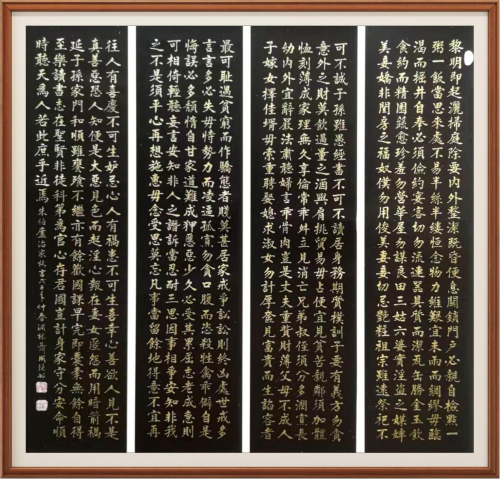 黎明即起灑掃庭除要內外整潔既昏便息關鎖門戶必親自檢點一
粥一飯當思來處不易半絲半縷恒念物力維艱宜未雨而綢繆毋臨
渴而掘井自奉必須儉約宴客切勿流連器具質而潔瓦缶勝金玉飲
食約而精園蔬愈珍羞勿營華屋勿謀良田三姑六婆實淫盜之媒婢
美妾嬌非閨房之福奴僕勿用俊美妻妾切忌艷粧祖宗雖遠祭祀不
可不誠子孫雖愚經書不可不讀居身務期質樸訓子要有義方勿貪
意外之財莫飲過量之酒與肩挑貿易毋占便宜見貧苦親鄰須加溫
恤刻薄成家理無久享倫常乖舛立見消亡兄弟叔侄須分多潤寡長
幼內外宜辭嚴法肅聽婦言乖骨肉豈是丈夫重資財薄父母不成人
子嫁女擇佳壻毋索重聘娶媳求淑女勿計厚奩見富貴而生諂容者
最可恥遇貧窮而作驕態者賤莫甚居家戒爭訟訟則終凶處世戒多
言言多必失毋恃勢力而凌逼孤寡勿貪口腹而恣殺牲禽乖僻自是
悔誤必多頹惰自甘家道難成狎昵惡少久必受其累屈志老成急則
可相倚輕聽發言安知非人之譖訴當忍耐三思因事相爭安知非我
之不是須平心再想施惠毋念受恩莫忘凡事當留餘地得意不宜再
往人有喜慶不可生妒忌心人有禍患不可生喜幸心善欲人見不是
真善惡恐人知便是大惡見色而起淫心報在妻女匿怨而用暗箭禍
延子孫家門和順雖饔飧不繼亦有餘歡國課早完即囊橐無餘自得
至樂讀書志在聖賢非徒科第為官心存君國豈計身家守分安命順
時聽天為人若此庶乎近焉 朱伯廬治家格言